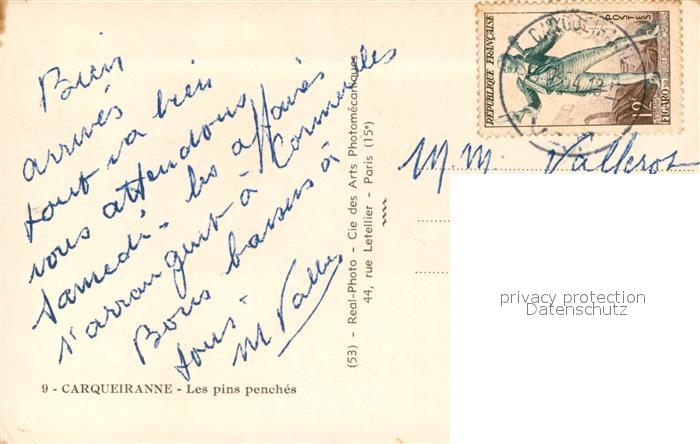 Bien
arrivés
tout va bien
vous attendons
Samedi - les affaires
s'arrangent à Cormeilles
Bons baisers à
tous -
M Valle
9 - CARQUEIRANNE - Les pins penchés
(53) - Real-Photo - Cie des Arts Photomécaniques
44, rue Letellier - Paris (15e)
RÉPUBLIQUE FRANÇAISE
POSTES
12F
FIGARO
M.M. Valleros
privacy protection
Datenschutz